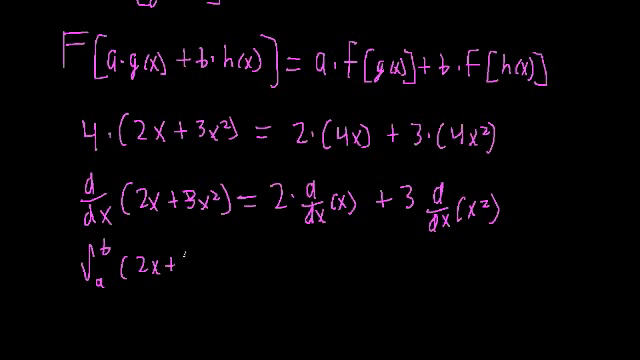 F[a·g(x) + b·h(x)] = a·F[g(x)] + b·F[h(x)]
4·(2x + 3x²) = 2·(4x) + 3·(4x²)
d/dx (2x + 3x²) = 2·d/dx (x) + 3 d/dx (x²)
∫ₐᵇ (2x +